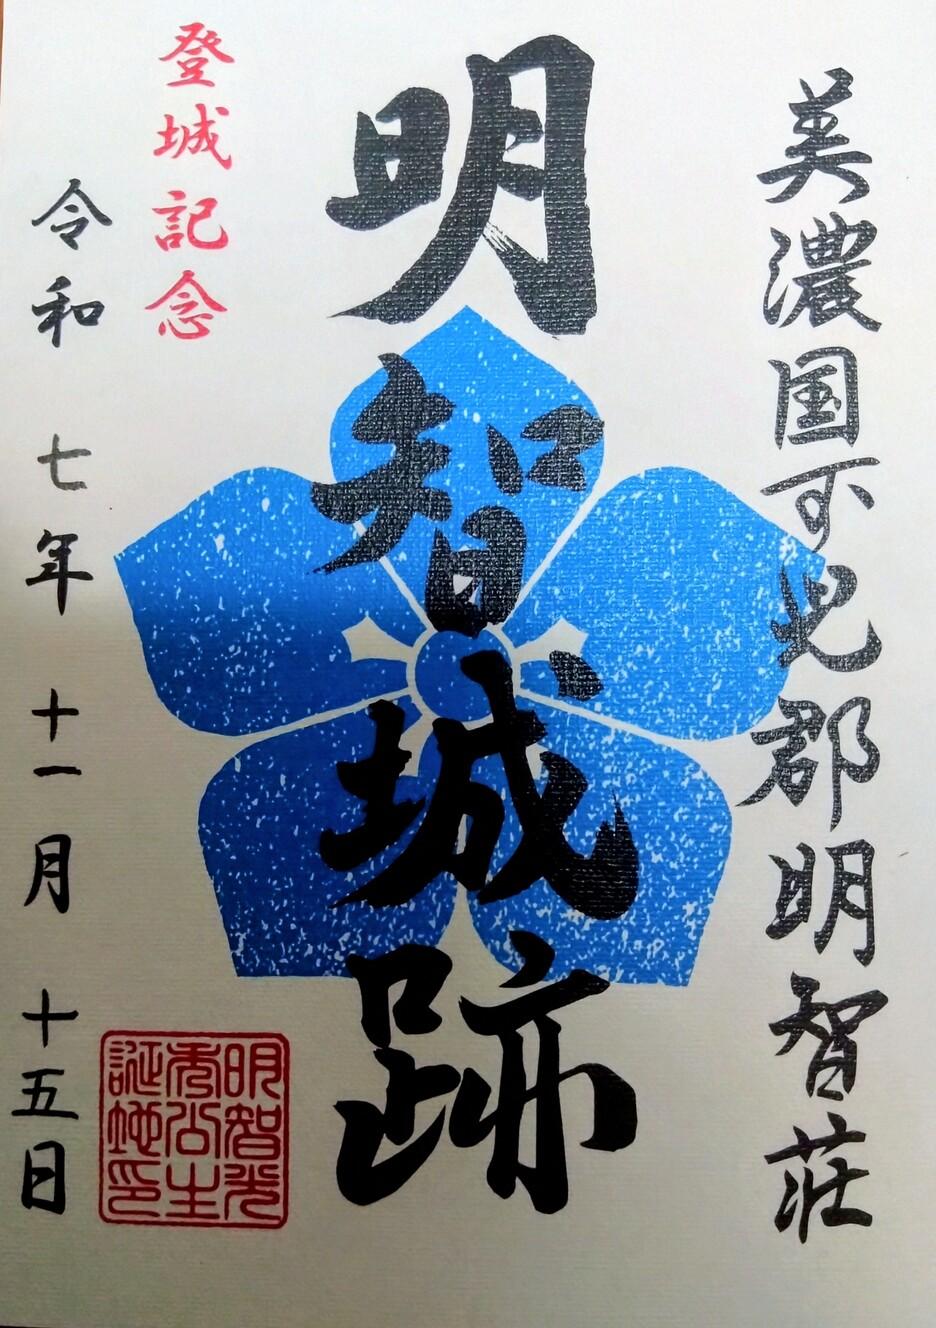 美濃国可児郡明智荘
明智城跡
登城記念
令和七年十一月十五日
明智光
秀公生
誕地印